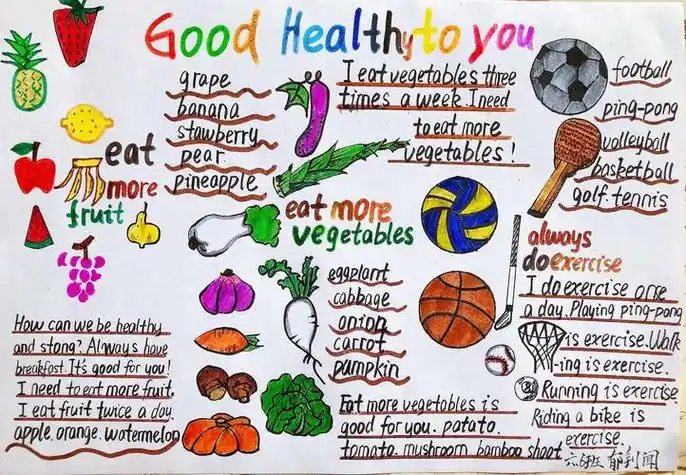 Good Healthy to you
eat
more
fruit
grape
banana
stawberry
pear
pineapple
I eat vegetables three
times a week. I need
to eat more
vegetables!
football
ping-pong
volleyball
basketball
golf. tennis
eat more
vegetables
always
do exercise
eggplant
cabbage
onion
carrot
pampkin
I do exercise once
a day. Playing ping-pong
is exercise. Walk
-ing is exercise.
Running is exercise.
Riding a bike is
exercise.
How can we be healthy
and stong? Always have
breakfast. It's good for you!
I need to eat more fruit.
I eat fruit twice a day.
apple. orange. watermelon
Eat more vegetables is
good for you. patato.
tomato. mushroom. bamboo shoot
六6班